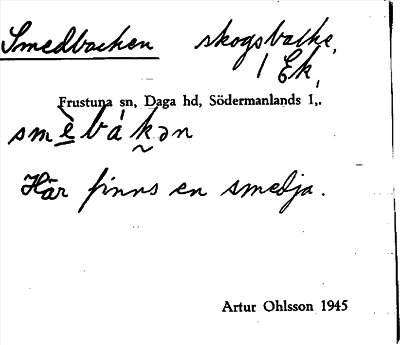 Smedbacken skogsbacke,
1 Ek,
Frustuna sn, Daga hd, Södermanlands l,.
smè̱bák̰ən
Här finns en smedja.
Artur Ohlsson 1945